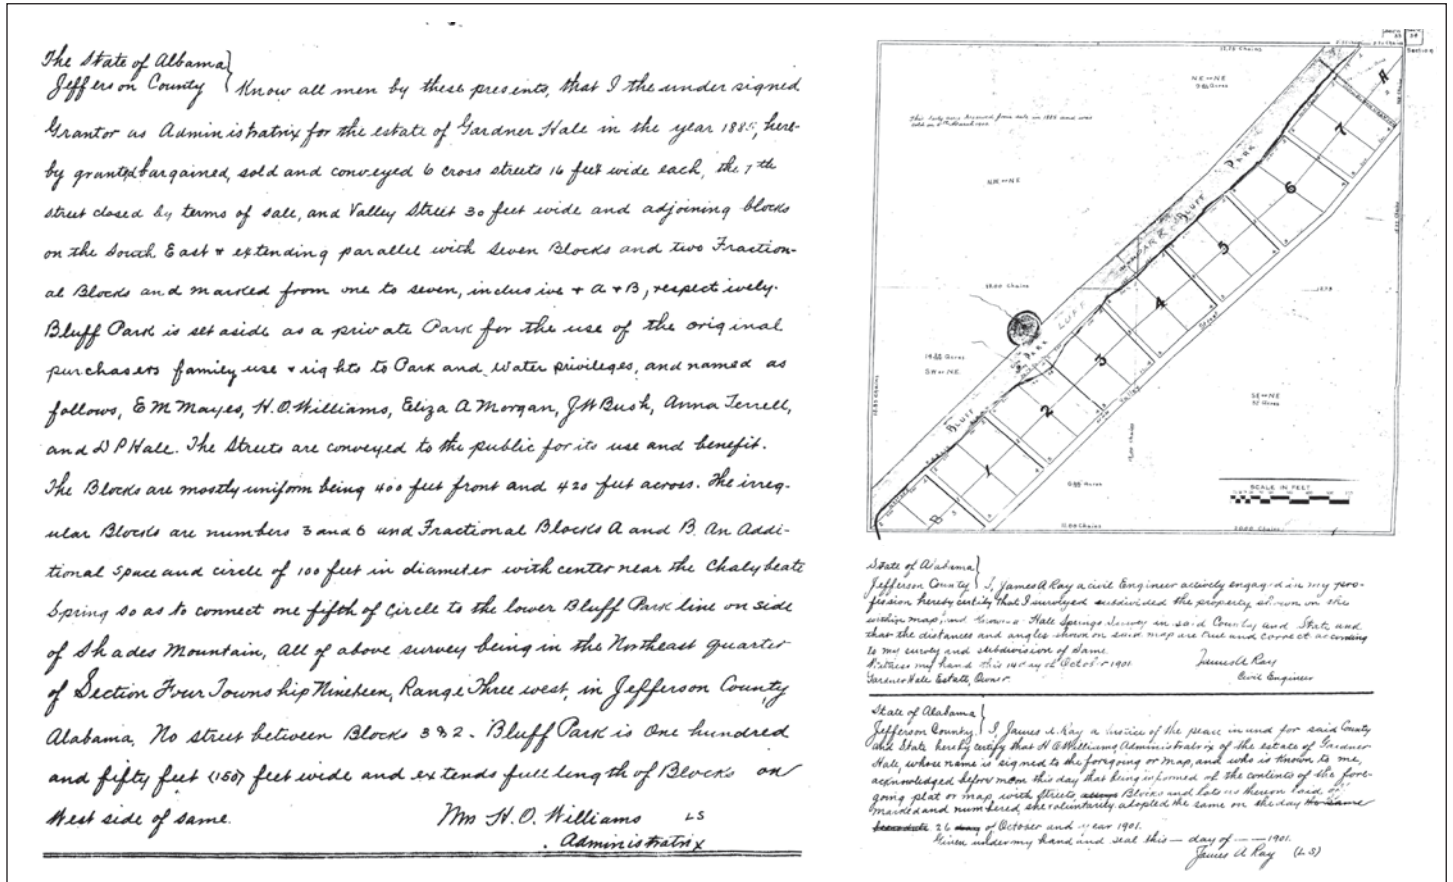 The State of Albama
Jefferson County Know all men by these presents, that I the under signed
Grantor as Administratrix for the estate of Gardner Hale in the year 1885, here-
by granted, bargained, sold and conveyed 6 cross streets 16 feet wide each, the 7th
street closed by terms of sale, and Valley Street 30 feet wide and adjoining blocks
on the South East & extending parallel with Seven Blocks and two Fraction-
al Blocks and marked from one to seven, inclusive & A & B, respectively.
Bluff Park is set aside as a private Park for the use of the original
purchasers family use & rights to Park and Water privileges, and named as
follows, E M Mayes, H. O. Williams, Eliza A Morgan, J W Bush, Anna Terrell,
and D P Hale. The Streets are conveyed to the public for its use and benefit.
The Blocks are mostly uniform being 400 feet front and 420 feet across. The irreg-
ular Blocks are numbers 3 and 6 and Fractional Blocks A and B. An Addi-
tional space and circle of 100 feet in diameter with center near the Chalybeate
Spring so as to connect one fifth of Circle to the lower Bluff Park line on side
of Shades Mountain, all of above survey being in the Northeast quarter
of Section Four Township Nineteen, Range Three west, in Jefferson County
Alabama. No street between Blocks 3 & 2. Bluff Park is One hundred
and fifty feet (150) feet wide and extends full length of Blocks on
West side of same.
Mrs H. O. Williams LS
Administratrix
Section
NE of NE
NW of NE
18.00 Chains
SW of NE
SE of NE
BLUFF PARK
PARK BLUFF PARK
A
7
6
5
4
3
2
1
B
Valley Street
SCALE IN FEET
State of Alabama
Jefferson County I, James A Ray a civil Engineer actively engaged in my pro-
fession hereby certify that I surveyed subdivided the property shown on the
within map, and known Hale Springs Survey in said County and State and
that the distances and angles shown on said map are true and correct according
to my survey and subdivision of same.
Witness my hand this 14 day of October 1901.
James A Ray
Gardner Hale Estate, Owner.
Civil Engineer
State of Alabama
Jefferson County. I, James A. Ray a Justice of the peace in and for said County
and State hereby certify that H O Williams, Administratrix of the estate of Gardner
Hale, whose name is signed to the foregoing or map, and who is known to me,
acknowledged before me on this day that being informed of the contents of the fore-
going plat or map with Streets, Blocks and lots as thereon laid of
marked and numbered she voluntarily adopted the same on the day
26 of October and year 1901.
Given under my hand and seal this — day of — 1901.
James A Ray (LS)